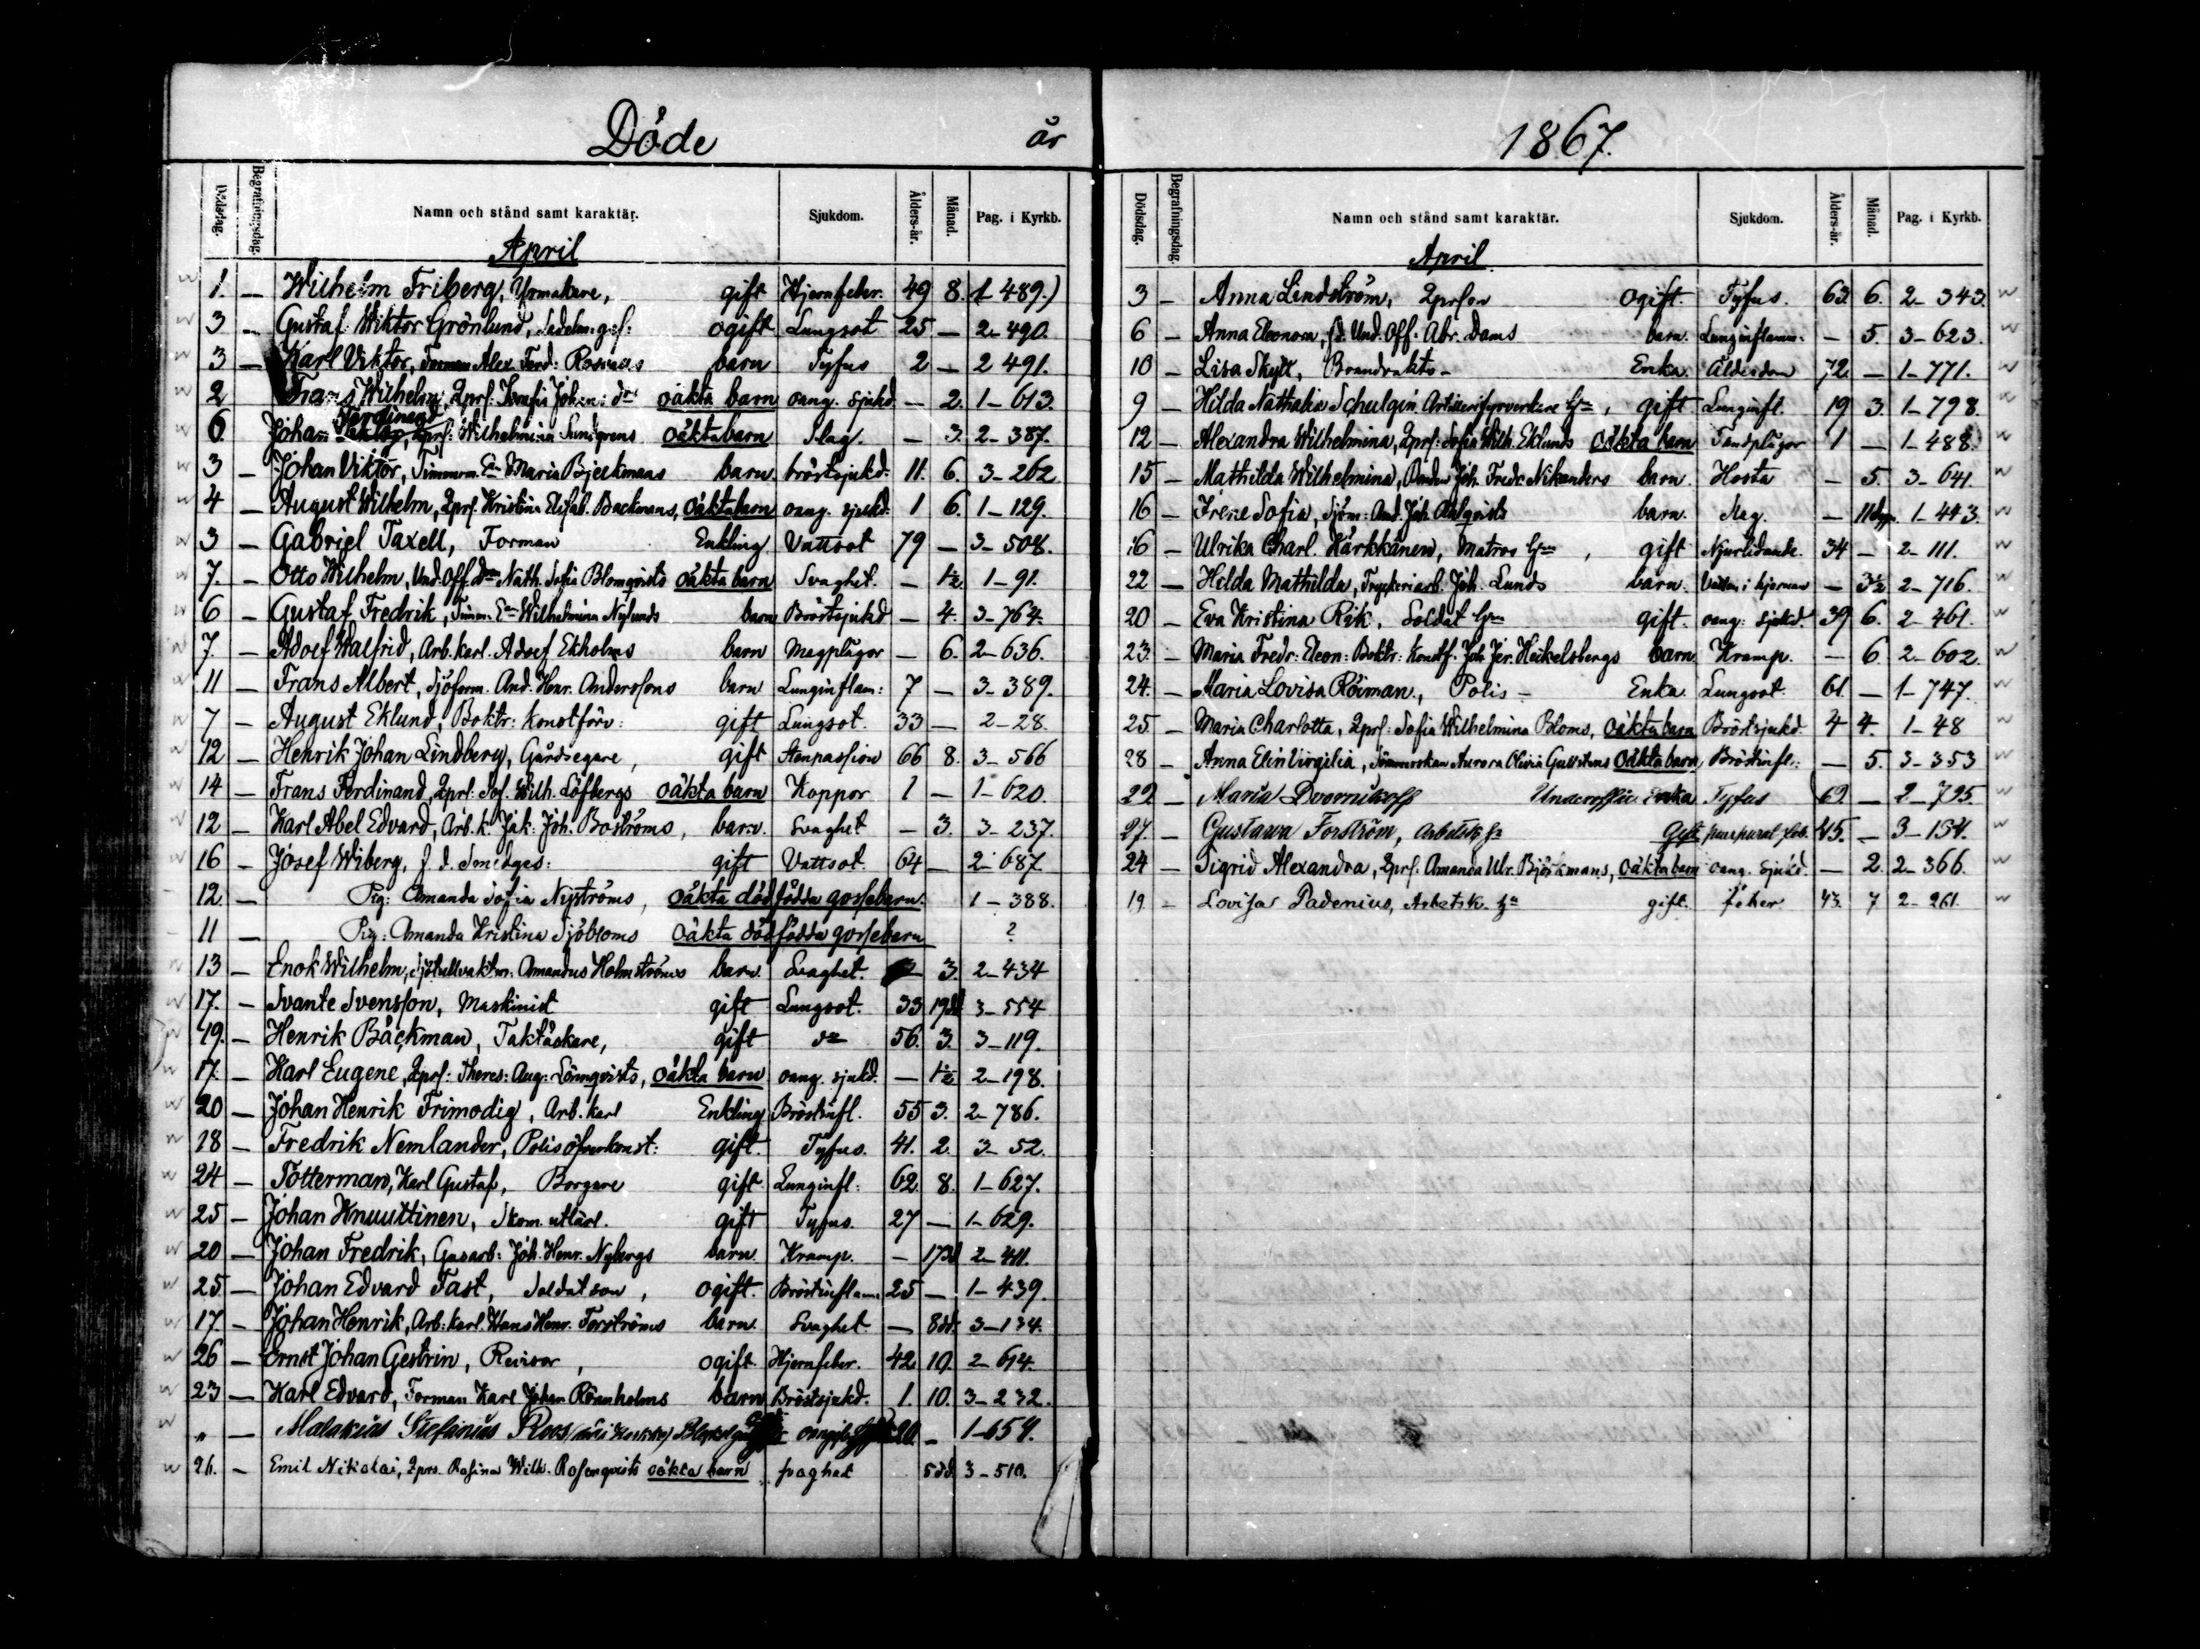 Döde år
Dödsdag. Begrafningsdag. Namn och stånd samt karaktär. Sjukdom. Ålders-år. Månad. Pag. i Kyrkb.
April
1. — Wilhelm Friberg, Urmakare, gift Hjernfeber. 49 8. 1-489.)
3 — Gustaf Wiktor Grönlund, Sadelm. ges: ogift Lungsot 25 — 2-490.
3 — Karl Viktor, Forman Alex. Ferd: barn Tyfus 2 — 2 491.
2 Frans Wilhelm, Qprs: Johan: dr oäkta barn oang. sjukd. — 2. 1-613.
6. Johan Ferdinand Qprs: Wilhelmina Sundgrens oäkta barn Slag. — 3. 2-387.
3 — Johan Viktor, Timmerm. Ea Maria Björkmans barn. bröstsjukd. 11. 6. 3-262
4 — August Wilhelm, Qprs. Kristina Elisab. Backmans, oäkta barn oang. sjukd. 1 6. 1-129.
3 — Gabriel Taxell, Forman Enkling Vattsot 79 — 3-508.
7. — Otto Wilhelm, Und. Off. dr Nath. Sofia Blomqvists oäkta barn Svaghet. — 1½ 1-91.
6 — Gustaf Fredrik, Timm. Ea Wilhelmina Nylunds barn Bröstsjukd — 4. 3-764.
7. — Adolf Walfrid, Arb. karl. Adolf Ekholms barn Magplågor — 6. 2-636.
11 — Frans Albert, Sjöform. And. Henr. Anderssons barn Lunginflam: 7 — 3-389.
7 — August Eklund, Boktr: konstförv: gift Lungsot. 33 — 2-28.
12 — Henrik Johan Lindberg, Gårdsegare, gift Stenpassion 66 8. 3-566
14 — Frans Ferdinand, Qprs. Sof. Wilh. Löfbergs oäkta barn Koppor 1 — 1-620.
12 — Karl Abel Edvard, Arb. k. Jak: Joh. Boströms, barn. Svaghet — 3. 3-237.
16 — Josef Wiberg, f. d. Smedges: gift Vattsot. 64 — 2-687
12. — Pig: Amanda Sofia Nyströms, oäkta dödfödda gossebarn. 1-388.
11 — Pig: Amanda Kristina Sjöbloms oäkta dödfödda gossebarn ?
13 — Enok Wilhelm, Sjötullvaktm: Amandus Holmströms barn. Svaghet. — 3. 2-434
17. — Svante Svensson, Maskinist gift Lungsot. 33 19dd 3-554
19. — Henrik Bäckman, Taktäckare, gift do 56. 3. 3-119.
17. — Karl Eugene, Qprs: Theres: Aug: Lönnqvists, oäkta barn oang. sjukd. — 1½ 2-198.
20 — Johan Henrik Frimodig, Arb. karl Enkling Bröstinfl. 55 3. 2-786.
18 — Fredrik Nemlander, Polisöfverkonst: gift. Tyfus. 41. 2. 3-52.
24 — Totterman, Karl Gustaf, Borgare gift. Lunginfl: 62. 8. 1-627.
25 — Johan Knuuttinen, Skom. utlärl. gift Tyfus. 27 — 1-629.
20 — Johan Fredrik, Gasarb: Joh. Henr. Nybergs barn. Kramp. — 17dd 2-411.
25 — Johan Edvard Fast, Soldatson, ogift. Bröstinflam: 25 — 1-439.
17. — Johan Henrik, Arb: karl. Hans Henr. Forströms barn. Svaghet. — 8dd. 3-134.
26 — Ernst Johan Gestrin, Revisor, ogift. Hjernfeber. 42 10. 2-614.
23 — Karl Edvard, Forman Karl Johan Rönnholms barn Bröstsjukd. 1. 10. 3-232.
„ — Malakias Stefanus Roos 20. — 1-654.
26. — Emil Nikolai, Qprs. Rosina Wilh. Rosenqvists oäkta barn svaghet 5dd 3-510.
1867.
Dödsdag. Begrafningsdag. Namn och stånd samt karaktär. Sjukdom. Ålders-år. Månad. Pag. i Kyrkb.
April.
3 — Anna Lindström, Qprson ogift. Tyfus. 63 6. 2-343.
6 — Anna Eleonora, f. d. Und. Off. Abr. Dams barn. Lunginflamm: — 5. 3-623.
10 — Lisa Skytt, Brandvakts- Enka. Ålderdom 72. — 1-771.
9 — Hilda Nathalia Schulgin. Artillerifyrverkare hu, gift Lunginfl. 19 3. 1-798.
12 — Alexandra Wilhelmina, Qprs: Sofia Wilh. Eklunds oäkta barn Tandplågor 1 — 1-488.
15 — Mathilda Wilhelmina, Joh. Fredr. Nikanders barn. Hosta — 5. 3-641.
16 — Irene Sofia, Sjöm: And. Joh. Ahlqvists barn. Slag. — 11dgr. 1-443.
16 — Ulrika Charl. Kärkkänen, Matros hu, gift Njurlidande. 34 — 2-111.
22 — Hilda Mathilda, Tryckeriarb. Joh. Lunds barn. Vatten i hjernan — 3½ 2-716.
20 — Eva Kristina Rik, Soldat hu gift. oang: sjukd. 39 6. 2-461.
23. — Maria Fredr: Eleon: Boktr: konstf. Joh. Jer. Heikelsbergs barn. Kramp. — 6 2-602
24. — Maria Lovisa Roiman, Polis- Enka. Lungsot. 61. — 1-747.
25. — Maria Charlotta, Qprs: Sofia Wilhelmina Bloms, oäkta barn Bröstsjukd. 4 4. 1-48
28 — Anna Elin Virgilia, Sömmerskan Aurora Olivia Gustafssons oäkta barn Bröstinfl: — 5. 3-353
29. — Maria Dvornikoff Underoffic. enka Tyfus 69 — 2-795.
27. — Gustava Forström, Arbetsk. hu Gift puerperal feb. 45. — 3-154.
24 — Sigrid Alexandra, Qprs. Amanda Ulr. Björkmans, oäkta barn oang. sjukd. — 2. 2-366.
19 — Lovisa Padenius, Arbetsk. hu gift. feber. 43. 7 2-261.